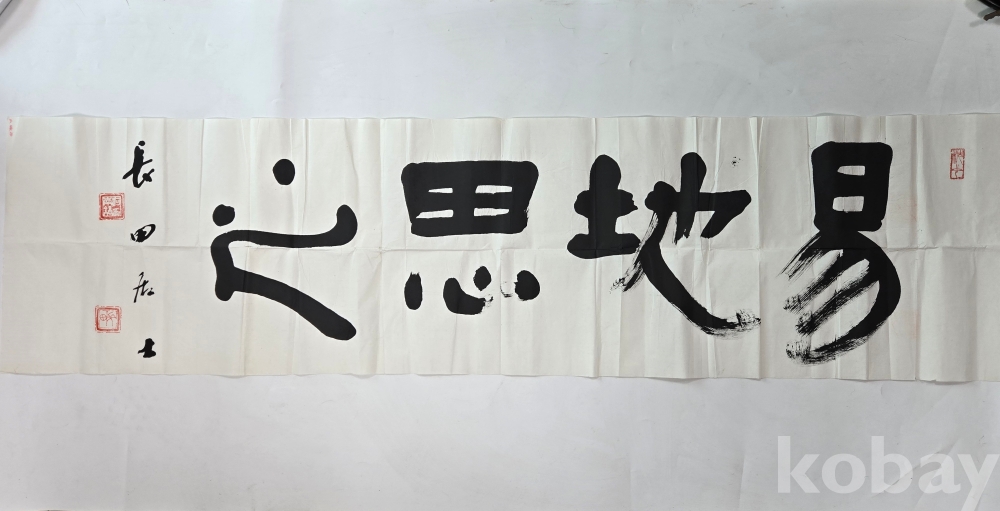 易地思之
長田居士
kobay